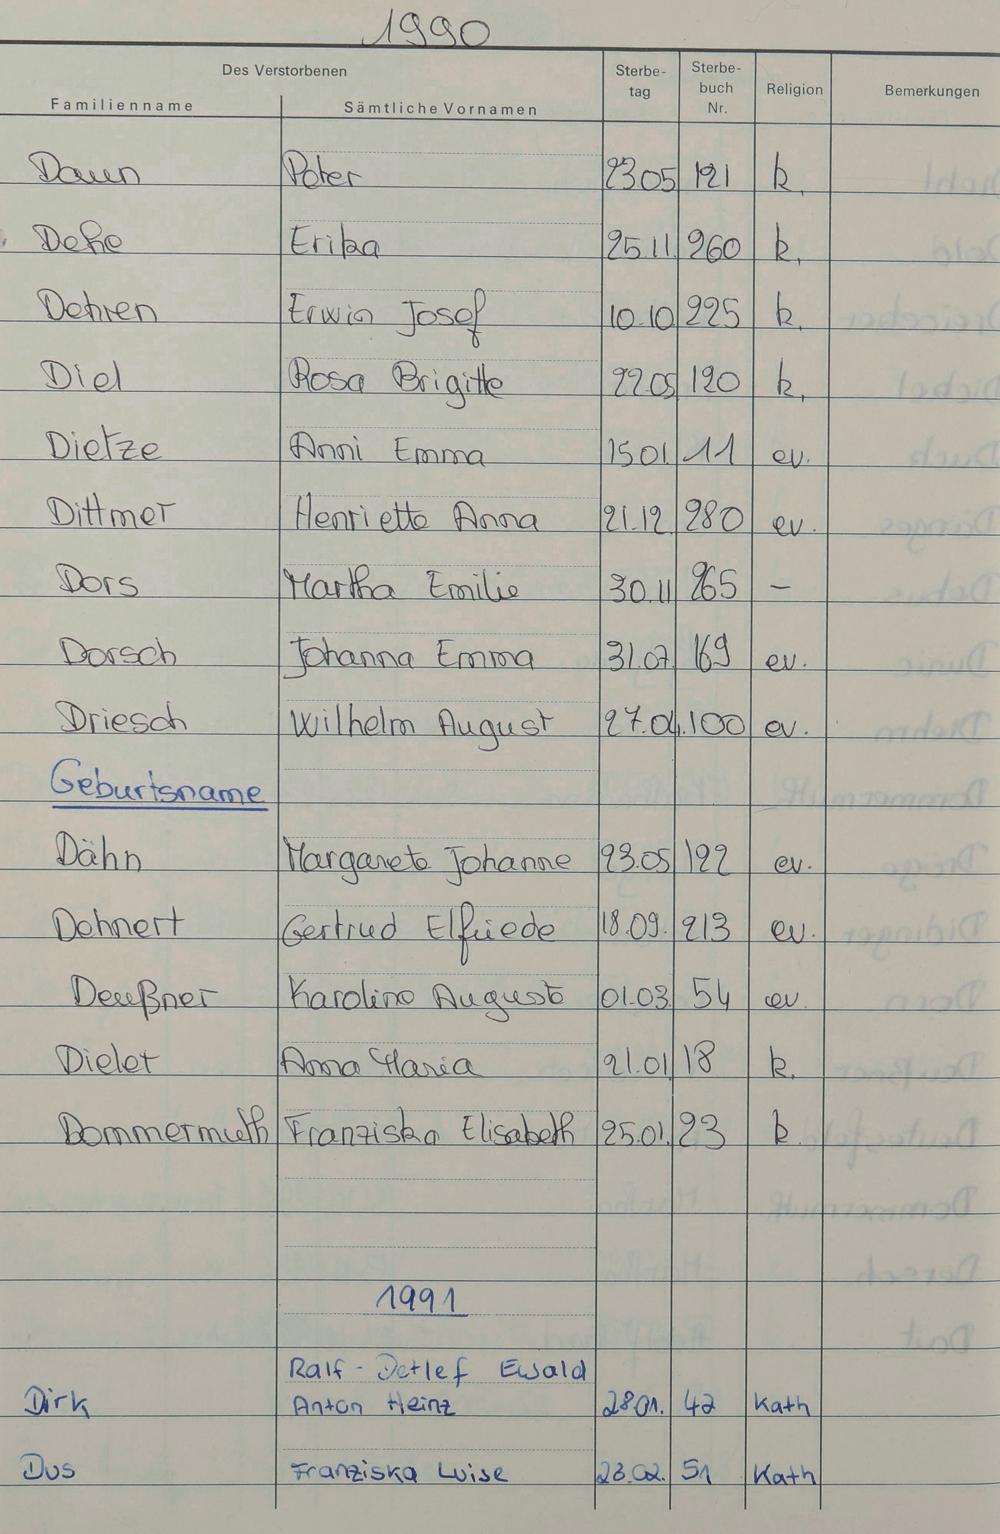 1990
Des Verstorbenen
Familienname Sämtliche Vornamen Sterbe-tag Sterbe-buch Nr. Religion Bemerkungen
Daun Peter 23.05 121 k.
Dehe Erika 25.11. 260 k.
Dehren Erwin Josef 10.10 225 k.
Diel Rosa Brigitte 22.05 120 k.
Dietze Anni Emma 15.01. 11 ev.
Dittmer Henriette Anna 21.12. 280 ev.
Dors Martha Emilie 30.11 265 –
Dorsch Johanna Emma 31.07. 169 ev.
Driesch Wilhelm August 27.04. 100 ev.
Geburtsname
Dähn Margarete Johanne 23.05 122 ev.
Dehnert Gertrud Elfriede 18.09. 213 ev.
Deußner Karoline Auguste 01.03. 54 ev.
Dielet Anna Maria 21.01. 18 k.
Dommermuth Franziska Elisabeth 25.01. 23 k.
1991
Ralf-Detlef Ewald
Dirk Anton Heinz 28.01. 42 Kath
Dus Franziska Luise 23.02. 51 Kath